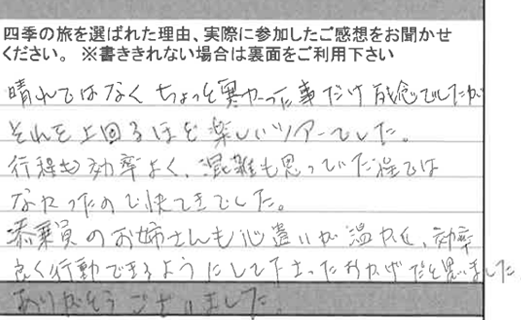 四季の旅を選ばれた理由、実際に参加したご感想をお聞かせ
ください。 ※書ききれない場合は裏面をご利用下さい
晴れではなくちょっと寒かった事だけ残念でしたが
それを上回るほど楽しいツアーでした。
行程も効率よく、混雑も思っていた程では
なかったので快てきでした。
添乗員のお姉さんも心遣いが温かく、効率
良く行動できるようにして下さったおかげだと思いました
ありがとうございました。